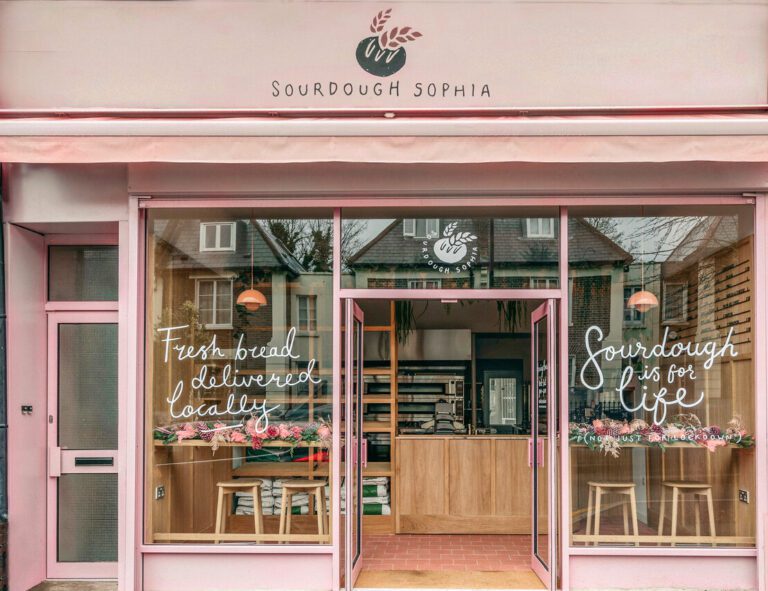 SOURDOUGH SOPHIA
URDOUGH SOPHIA
Fresh bread
delivered
locally
Sourdough
is for
life
(NOT JUST FOR LOCKDOWN)